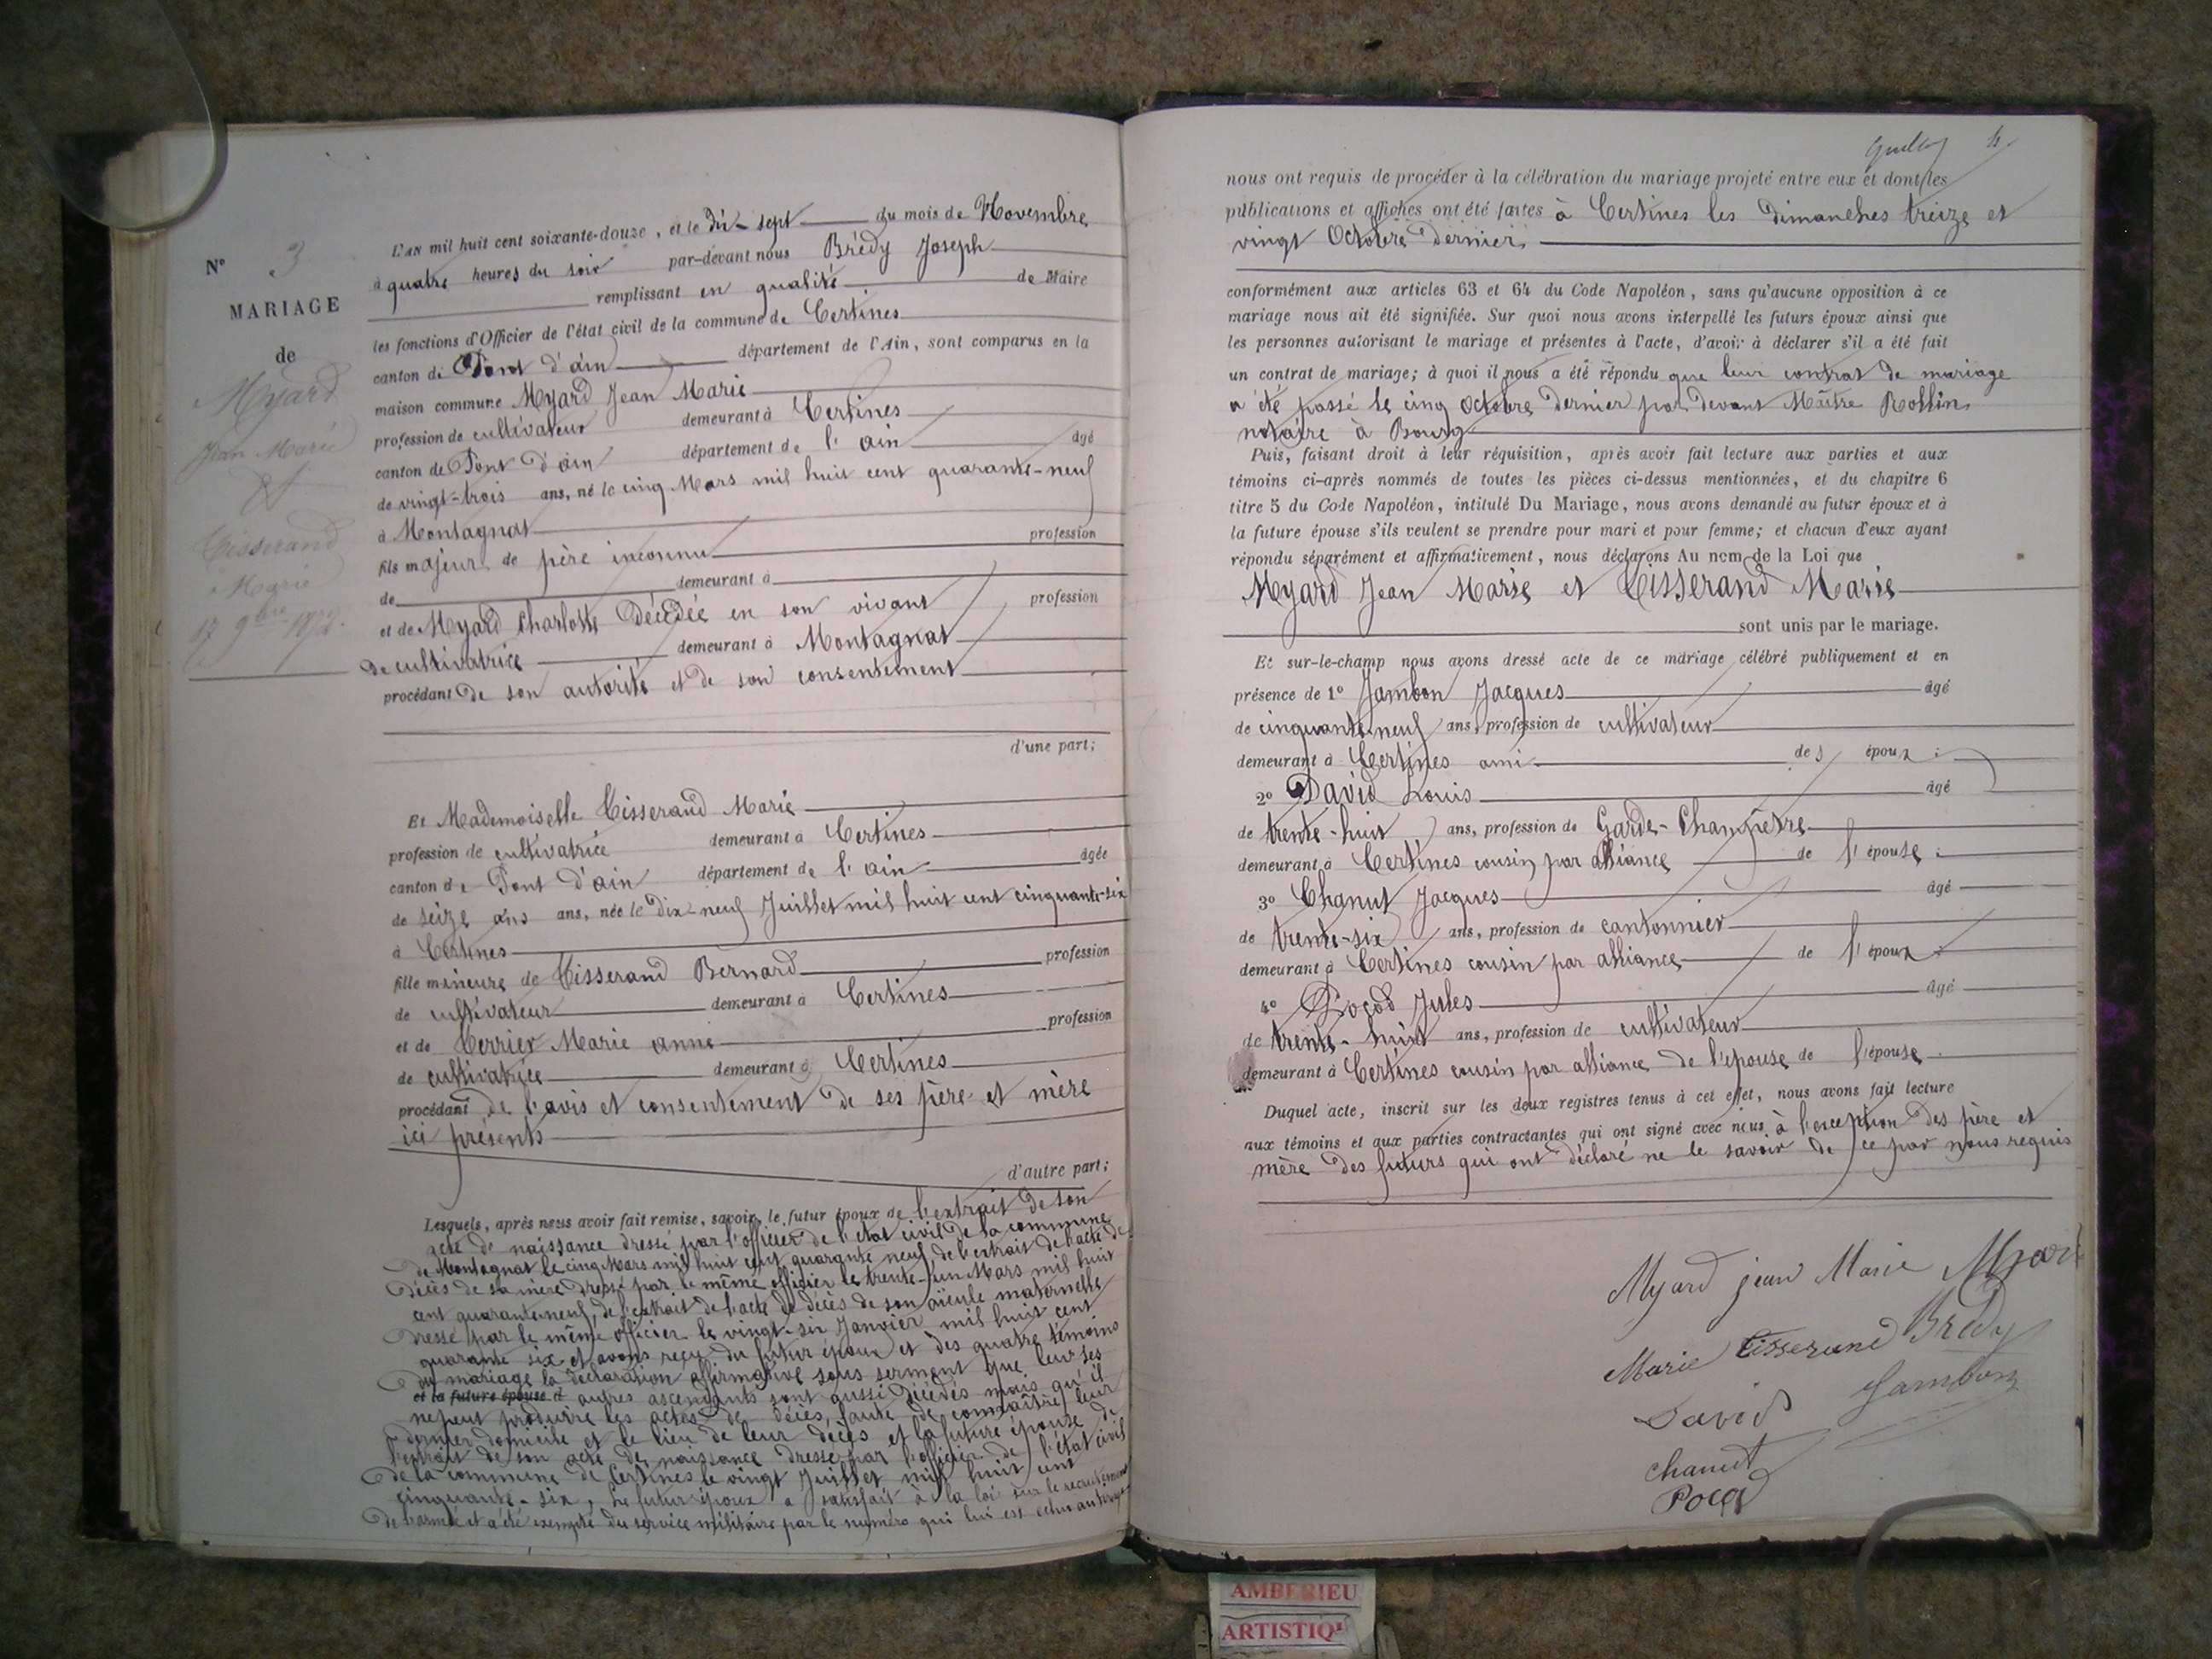 N° 3
MARIAGE
de
Myard
Jean Marie
et
Tisserand
Marie
17 9bre 1872
L'an mil huit cent soixante-douze, et le dix-sept du mois de Novembre
à quatre heures du soir par-devant nous Brédy Joseph
remplissant en qualité de Maire
les fonctions d'Officier de l'état civil de la commune de Certines
canton de Pont d'ain département de l'Ain, sont comparus en la
maison commune Myard Jean Marie
profession de cultivateur demeurant à Certines
canton de Pont d'ain département de l'ain âgé
de vingt-trois ans, né le cinq Mars mil huit cent quarante-neuf
à Montagnat
fils majeur de père inconnu profession
de demeurant à
et de Myard Charlotte Décédée en son vivant profession
de cultivatrice demeurant à Montagnat
procédant de son autorité et de son consentement
d'une part;
Et Mademoiselle Tisserand Marie
profession de cultivatrice demeurant à Certines
canton de Pont d'ain département de l'ain âgée
de seize ans ans, née le Dix-neuf Juillet mil huit cent cinquante-six
à Certines
fille mineure de Tisserand Bernard profession
de cultivateur demeurant à Certines
et de Terrier Marie anne profession
de cultivatrice demeurant à Certines
procédant de l'avis et consentement de ses père et mère
ici présents
d'autre part;
Lesquels, après nous avoir fait remise, savoir, le futur époux de l'extrait de son
acte de naissance dressé par l'officier de l'état civil de la commune
de Montagnat le cinq Mars mil huit cent quarante neuf de l'extrait de l'acte de
décès de sa mère dressé par le même officier le trente-un Mars mil huit
cent quarante-neuf, de l'extrait de l'acte de décès de son aïeule maternelle
dressé par le même officier le vingt-six Janvier mil huit cent
quarante six et avons reçu du futur époux et des quatre témoins
du mariage la déclaration affirmative sous serment que leur ses
et la future épouse d autres ascendants sont aussi décédés mais qu'il
ne peut produire les actes de décès, faute de connaître leur
dernier domicile et le lieu de leur décès et la future épouse de
l'extrait de son acte de naissance dressé par l'officier de l'état civil
de la commune de Certines le vingt Juillet mil huit cent
cinquante-six, Le futur époux a satisfait à la loi sur le recrutement
de l'armée et a été exempté du service militaire par le numéro qui lui est échu au tirage
4
nous ont requis de procéder à la célébration du mariage projeté entre eux et dont les
publications et affiches ont été faites à Certines les Dimanches treize et
vingt Octobre Dernier
conformément aux articles 63 et 64 du Code Napoléon, sans qu'aucune opposition à ce
mariage nous ait été signifiée. Sur quoi nous avons interpellé les futurs époux ainsi que
les personnes autorisant le mariage et présentes à l'acte, d'avoir à déclarer s'il a été fait
un contrat de mariage; à quoi il nous a été répondu que leur contrat de mariage
a été passé le cinq Octobre Dernier par devant Maître Rollin
notaire à Bourg
Puis, faisant droit à leur réquisition, après avoir fait lecture aux parties et aux
témoins ci-après nommés de toutes les pièces ci-dessus mentionnées, et du chapitre 6
titre 5 du Code Napoléon, intitulé Du Mariage, nous avons demandé au futur époux et à
la future épouse s'ils veulent se prendre pour mari et pour femme; et chacun d'eux ayant
répondu séparément et affirmativement, nous déclarons Au nom de la Loi que
Myard Jean Marie et Tisserand Marie
sont unis par le mariage.
Et sur-le-champ nous avons dressé acte de ce mariage célébré publiquement et en
présence de 1° Jambon Jacques âgé
de cinquante-neuf ans, profession de cultivateur
demeurant à Certines ami des époux :
2° David Louis âgé
de trente-huit ans, profession de Garde-Champêtre
demeurant à Certines cousin par alliance de l'épouse :
3° Chanut Jacques âgé
de trente-six ans, profession de cantonnier
demeurant à Certines cousin par alliance de l'époux :
4° Pocod Jules âgé
de trente-huit ans, profession de cultivateur
demeurant à Certines cousin par alliance de l'épouse de l'épouse
Duquel acte, inscrit sur les deux registres tenus à cet effet, nous avons fait lecture
aux témoins et aux parties contractantes qui ont signé avec nous à l'exception des père et
mère des futurs qui ont déclaré ne le savoir de ce par nous requis
Myard jean Marie
Marie Tisserand Brédy
David Jambon
Chanut
AMBERIEU
ARTISTIQ